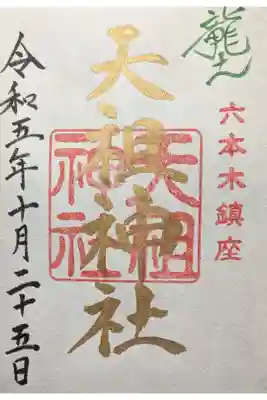 龍土
六本木鎮座
天祖神社
天祖
神社
令和五年十月二十五日